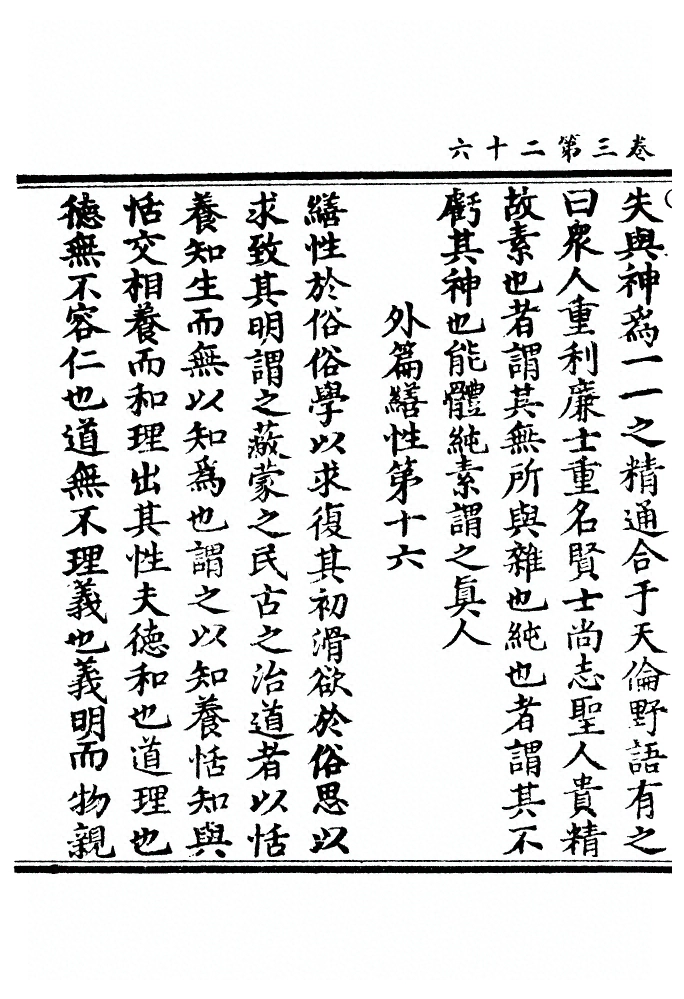 卷三第二十六
失與神為一一之精通合于天倫野語有之
曰衆人重利廉士重名賢士尚志聖人貴精
故素也者謂其無所與雜也純也者謂其不
虧其神也能體純素謂之真人
外篇繕性第十六
繕性於俗俗學以求復其初滑欲於俗思以
求致其明謂之蔽蒙之民古之治道者以恬
養知生而無以知為也謂之以知養恬知與
恬交相養而和理出其性夫德和也道理也
德無不容仁也道無不理義也義明而物親